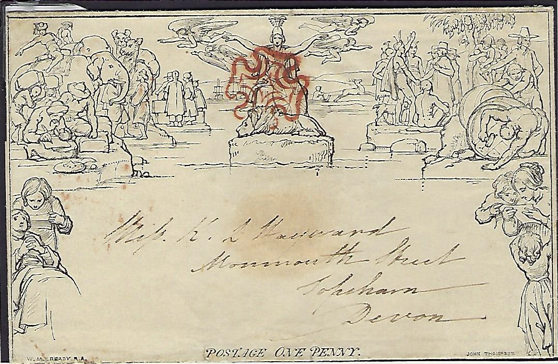 Miss K. L Hayward
Monmouth Street
Topsham
Devon
W. MULREADY. R.A.
POSTAGE ONE PENNY.
JOHN THOMPSON